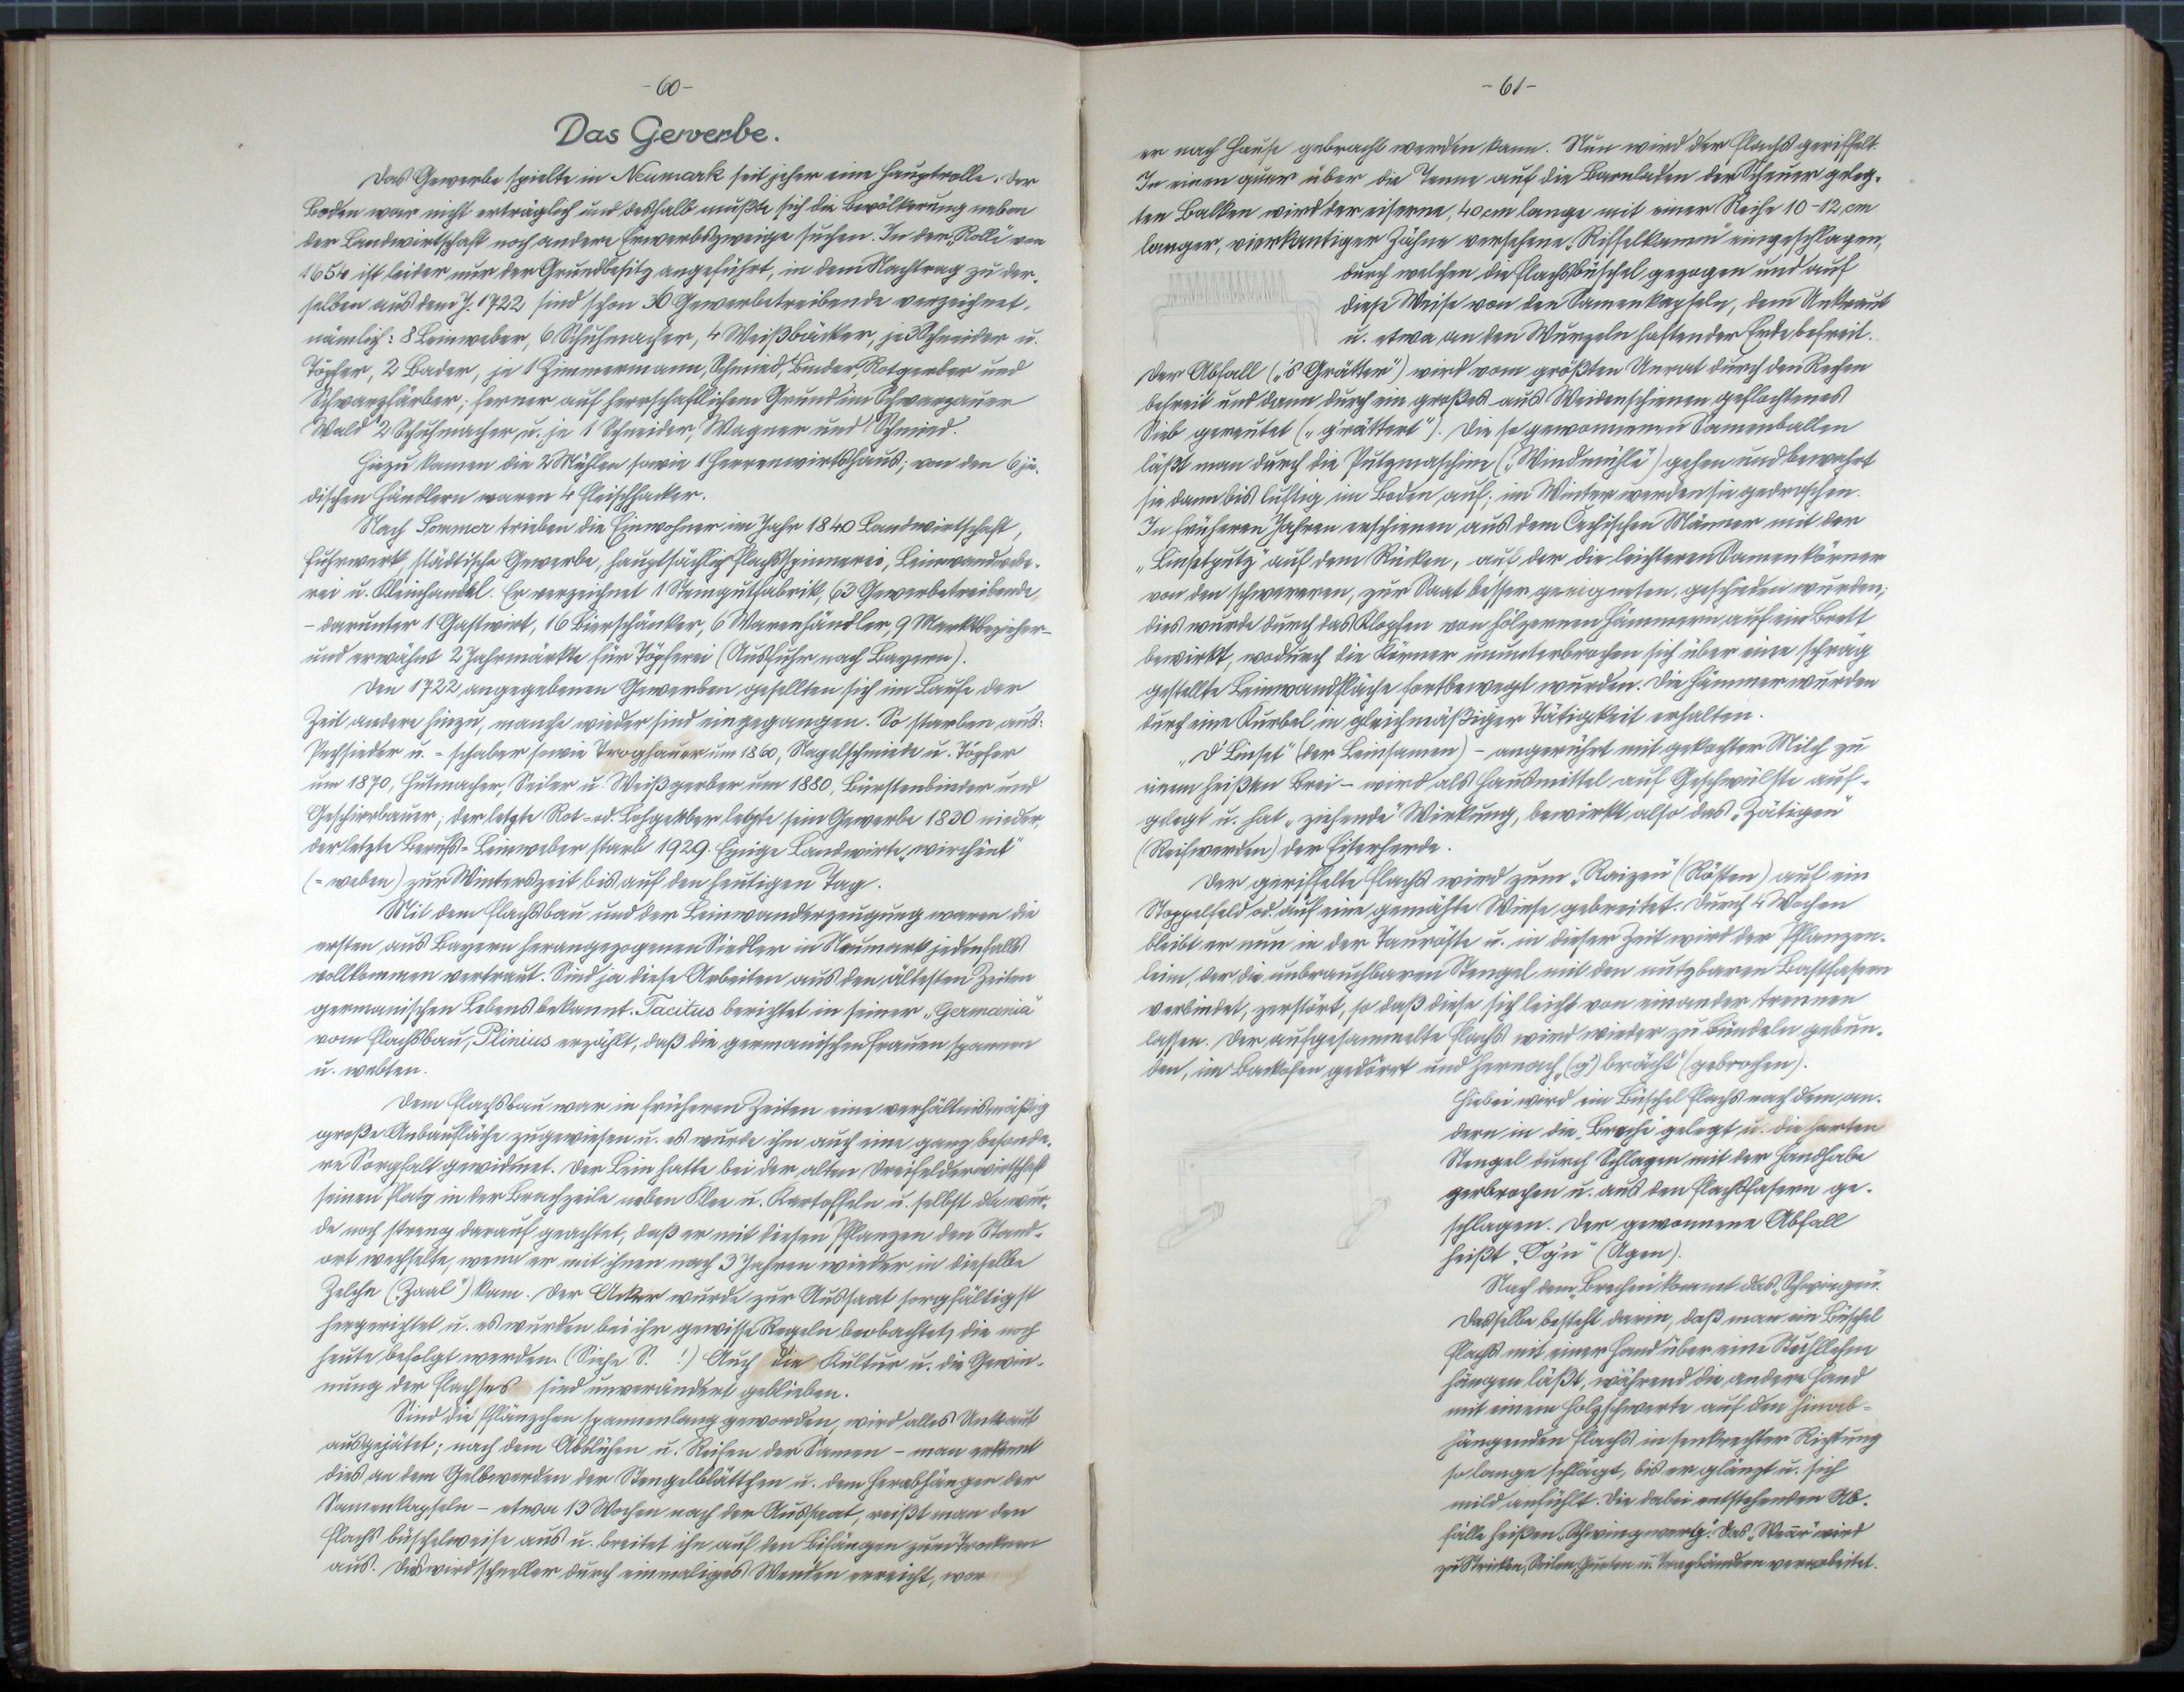 -60-
Das Gewerbe.
Das Gewerbe spielte in Neumark seit jeher eine Hauptrolle. Der
Boden war nicht erträglich und deshalb mußte sich die Bevölkerung neben
der Landwirtschaft noch andere Erwerbszweige suchen. In der „Rolle" von
1654 ist leider nur der Grundbesitz angeführt, in dem Nachtrag zu der-
selben aus dem J. 1722 sind schon 36 Gewerbetreibende verzeichnet,
nämlich: 8 Leinweber, 6 Schuhmacher, 4 Weißbäcker, je 3 Schneider u.
Töpfer, 2 Bader, je 1 Zimmermann, Schmied, Binder, Rotgerber und
Schwarzfärber; ferner auf herrschaftlichem Grund im Schwarzauer
Wald 2 Schuhmacher u. je 1 Schneider, Wagner und Schmied.
Hiezu kamen die 2 Mühlen sowie 1 Herrenwirtshaus; von den 6 jü-
dischen Händlern waren 4 Fleischhacker.
Nach Sommer trieben die Einwohner im Jahr 1840 Landwirtschaft,
Fuhrwerk, städtische Gewerbe, hauptsächlich Flachsspinnerei, Leinwandwebe-
rei u. Kleinhandel. Er verzeichnet 1 Steingutfabrik, 63 Gewerbetreibende
- darunter 1 Gastwirt, 16 Bierschänker, 6 Warenhändler, 9 Marktbezieher -
und erwähnt 2 Jahrmärkte für Töpferei (Ausfuhr nach Bayern).
Den 1722 angegebenen Gewerben gesellten sich im Laufe der
Zeit andere hinzu, manche wieder sind eingegangen. So starben aus:
Pechsieder u. = schaber sowie Troghauer um 1860, Nagelschmiede u. Töpfer
um 1870, Hutmacher, Seiler u. Weißgerber um 1880, Bürstenbinder und
Geschirrbauer; der letzte Rot- od. Lohgerber legte sein Gewerbe 1830 nieder,
der letzte Berufs-Leinweber starb 1929. Einige Landwirte „wirchent"
(= weben) zur Winterszeit bis auf den heutigen Tag.
Mit dem Flachsbau und der Leinwanderzeugung waren die
ersten aus Bayern herangezogenen Siedler in Neumark jedenfalls
vollkommen vertraut. Sind ja diese Arbeiten aus den ältesten Zeiten
germanischen Lebens bekannt. Tacitus berichtet in seiner „Germania"
vom Flachsbau, Plinius erzählt, daß die germanischen Frauen spannen
u. webten.
Dem Flachsbau war in früheren Zeiten eine verhältnismäßig
große Anbaufläche zugewiesen u. es wurde ihm auch eine ganz besonde-
re Sorgfalt gewidmet. Der Lein hatte bei der alten Dreifelderwirtschaft
seinen Platz in der Brachzeile neben Klee u. Kartoffeln u. selbst da wur-
de noch streng darauf geachtet, daß er mit diesen Pflanzen den Stand-
ort wechselte, wenn er mit ihnen nach 3 Jahren wieder in dieselbe
Zelche („Zaal") kam. Der Acker wurde zur Aussaat sorgfältigst
hergerichtet u. es wurden bei ihr gewisse Regeln beobachtet, die noch
heute befolgt werden. (Siehe S. !) Auch die Kultur u. die Gewin-
nung des Flachses sind unverändert geblieben.
Sind die Pflänzchen spannenlang geworden, wird alles Unkraut
ausgejätet; nach dem Abblühen u. Reifen der Samen - man erkennt
dies an dem Gelbwerden der Stengelblättchen u. dem Herabhängen der
Samenkapseln - etwa 13 Wochen nach der Aussaat, reißt man den
Flachs büschelweise aus u. breitet ihn auf den Bifängen zum Trocknen
aus. Dies wird schneller durch einmaliges Wenden erreicht, wor
-61-
er nach Hause gebracht werden kann. Nun wird der Flachs geriffelt.
In einen quer über die Tenne auf die Barnladen der Scheuer geleg-
ten Balken wird der eiserne, 40 cm lange mit einer Reihe 10-12 cm
langer, vierkantiger Zähne versehene „Riffelkamm" eingeschlagen,
durch welchen die Flachsbüschel gezogen und auf
diese Weise von den Samenkapseln, dem Unkraut
u. etwa an den Wurzeln haftender Erde befreit.
Der Abfall („'s Grätter") wird vom größten Unrat durch den Rechen
befreit und dann durch ein großes aus Weidenschienen geflochtenes
Sieb gereutet („g'rättert"). Die so gewonnenen Samenballen
läßt man durch die Putzmaschine („Windmühle") gehen und bewahrt
sie dann bis luftig im Boden auf; im Winter werden sie gedroschen.
In früheren Jahren erschienen aus dem Čechischen Männer mit der
„Linsetputz" auf dem Rücken, auf der die leichteren Samenkörner
von den schwereren, zur Saat besser geeigneten, geschieden wurden;
dies wurde durch das Klopfen von hölzernen Hämmern auf ein Brett
bewirkt, wodurch die Körner ununterbrochen sich über eine schräg
gestellte Leinwandfläche fortbewegt wurden. Die Hämmer wurden
durch eine Kurbel in gleichmäßiger Tätigkeit erhalten.
„D' Linset" (der Leinsamen) - angerührt mit gekochter Milch zu
einem heißen Brei - wird als Hausmittel auf Geschwülste auf-
gelegt u. hat „ziehende" Wirkung, bewirkt also das „Zätigen"
(Reifwerden) der Eiterherde.
Der geriffelte Flachs wird zum „Raizen" (Rösten) auf ein
Stoppelfeld od. auf eine gemähte Wiese gebreitet. Durch 4 Wochen
bleibt er nun in der Tauröste u. in dieser Zeit wird der Pflanzen-
leim, der die unbrauchbaren Stengel mit den nutzbaren Bastfasern
verbindet, zerstört, so daß diese sich leicht von einander trennen
lassen. Der aufgesammelte Flachs wird wieder zu Bündeln gebun-
den, im Backofen gedörrt und hernach „(g') brächt" (gebrochen).
Hiebei wird ein Büschel Flachs nach dem an-
dern in die „Breche" gelegt u. die harten
Stengel durch Schlagen mit der Handhabe
gebrochen u. aus den Flachsfasern ge-
schlagen. Der gewonnene Abfall
heißt „Og'n" (Agen).
Nach dem „Brechen" kommt das „Schwingen".
Dasselbe besteht darin, daß man ein Büschel
Flachs mit einer Hand über eine Stuhllehne
hängen läßt, während die andere Hand
mit einem Holzschwerte auf den hinab-
hängenden Flachs in senkrechter Richtung
so lange schlägt, bis er glänzt u. sich
mild anfühlt. Die dabei entstehenden Ab-
fälle heißen „Schwingwerg". Das wird
zu Stricken, Seilen, Gurten u. Tragbändern verarbeitet.